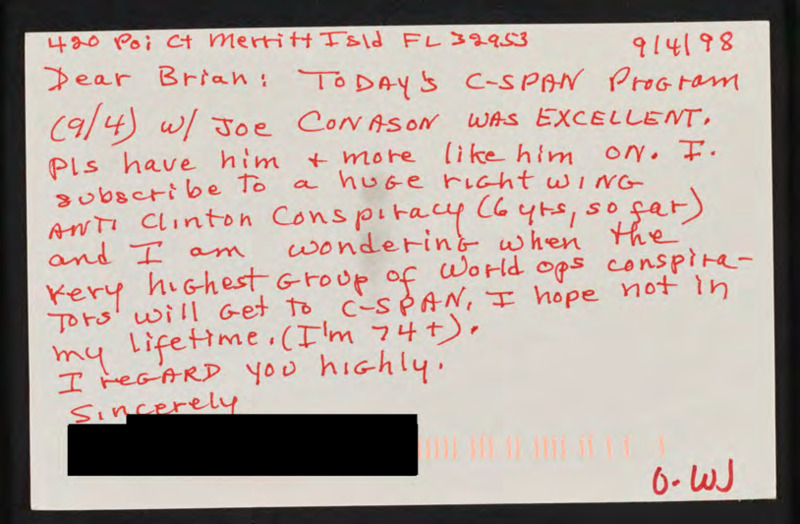 420 Poi Ct Merritt Isld FL 32953 9/4/98
Dear Brian: TODAY'S C-SPAN Program
(9/4) w/ Joe CONASON WAS EXCELLENT.
Pls have him + more like him ON. I.
subscribe to a huge right WING
ANTI Clinton Conspiracy (6 yrs, so far)
and I am wondering when the
very highest group of world ops conspira-
tors will get to C-SPAN. I hope not in
my lifetime. (I'm 74+).
I REGARD you highly.
Sincerely
O-WJ